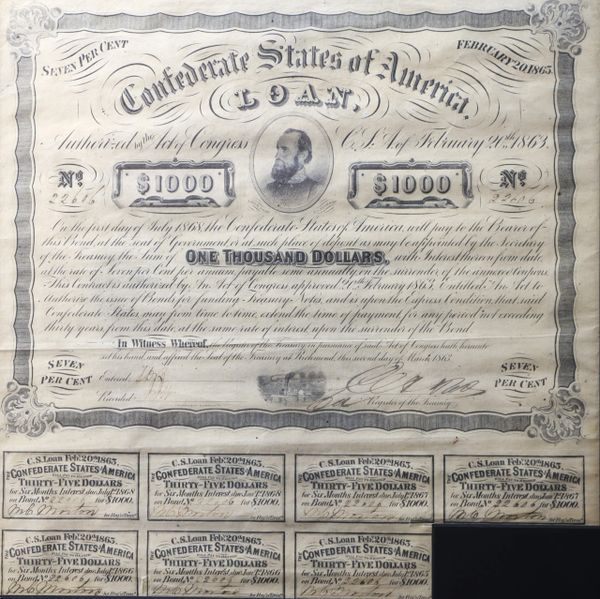 SEVEN PER CENT
FEBRUARY 20, 1863.
Confederate States of America.
LOAN,
Authorized by the Act of Congress C. S. A. of February 20th, 1863.
No. No.
$1000 $1000
22606 22606
On the first day of July 1868, the Confederate States of America, will pay to the Bearer of
this Bond, at the seat of Government, or at such place of deposit as may be appointed by the Secretary
of the Treasury, the Sum of ONE THOUSAND DOLLARS, with Interest thereon from date,
at the rate of Seven per Cent per annum, payable semi-annually on the surrender of the annexed Coupons.
This Contract is authorized by An Act of Congress approved 20th February 1863, Entitled "An Act to
Authorize the issue of Bonds for funding Treasury Notes, and is upon the Express Condition that said
Confederate States may from time to time, extend the time of payment for any period not exceeding
thirty years from this date, at the same rate of interest upon the surrender of the Bond.
In Witness Whereof, the Register of the Treasury in pursuance of said Act of Congress hath hereunto
set his hand, and affixed the Seal of the Treasury at Richmond, this second day of March 1863.
SEVEN PER CENT
SEVEN PER CENT
Entered
Recorded
Register of the Treasury
C.S. Loan Feb. 20th 1863.
THE CONFEDERATE STATES OF AMERICA
THIRTY-FIVE DOLLARS
for Six Months Interest due July 1st 1868
on Bond, No. 22606 for $1000.
C.S. Loan Feb. 20th 1863.
THE CONFEDERATE STATES OF AMERICA
THIRTY-FIVE DOLLARS
for Six Months Interest due Jany 1st 1868
on Bond, No. 22606 for $1000.
C.S. Loan Feb. 20th 1863.
THE CONFEDERATE STATES OF AMERICA
THIRTY-FIVE DOLLARS
for Six Months Interest due July 1st 1867
on Bond, No. 22606 for $1000.
C.S. Loan Feb. 20th 1863.
THE CONFEDERATE STATES OF AMERICA
THIRTY-FIVE DOLLARS
for Six Months Interest due Jany 1st 1867
on Bond, No. 22606 for $1000.
C.S. Loan Feb. 20th 1863.
THE CONFEDERATE STATES OF AMERICA
THIRTY-FIVE DOLLARS
for Six Months Interest due July 1st 1866
on Bond, No. 22606 for $1000.
C.S. Loan Feb. 20th 1863.
THE CONFEDERATE STATES OF AMERICA
THIRTY-FIVE DOLLARS
for Six Months Interest due Jany 1st 1866
on Bond, No. 22606 for $1000.
C.S. Loan Feb. 20th 1863.
THE CONFEDERATE STATES OF AMERICA
THIRTY-FIVE DOLLARS
for Six Months Interest due July 1st 1865
on Bond, No. 22606 for $1000.